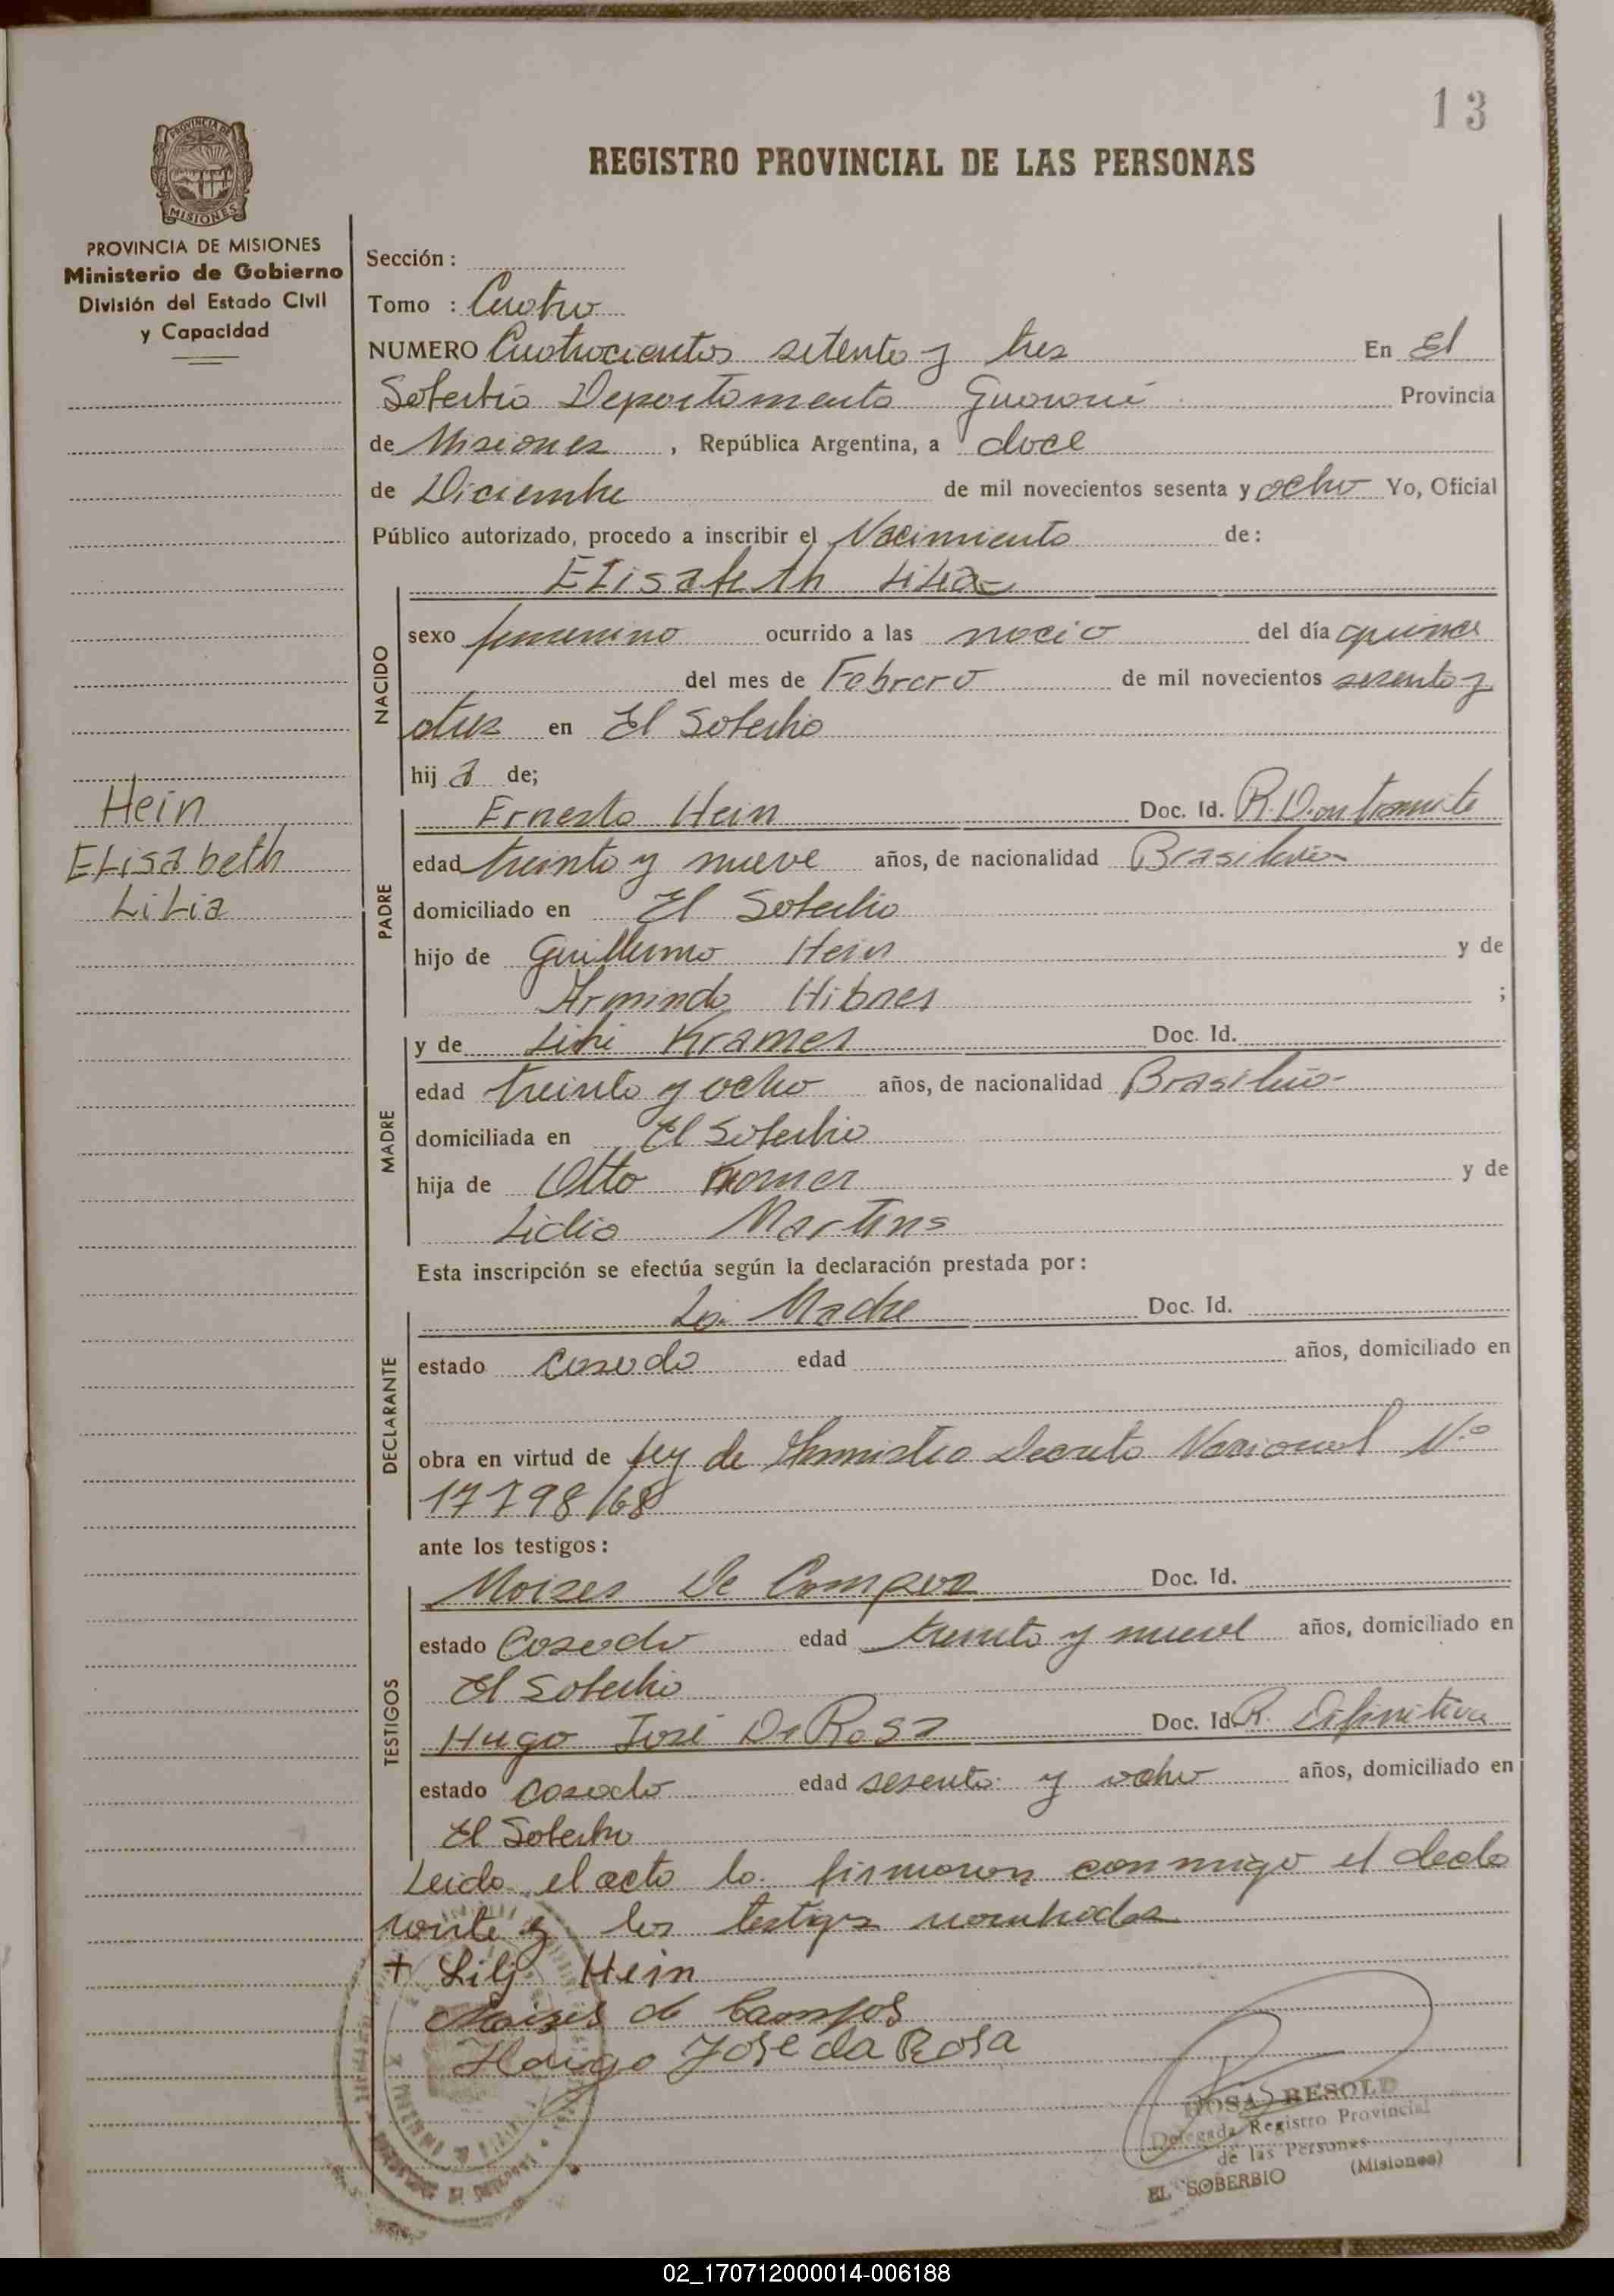 13
REGISTRO PROVINCIAL DE LAS PERSONAS
PROVINCIA DE
MISIONES
PROVINCIA DE MISIONES
Ministerio de Gobierno
División del Estado Civil
y Capacidad
Hein
Elisabeth
Lilia
Sección :
Tomo : Cuatro
NUMERO Cuatrocientos setenta y tres En El
Soberbio Departamento Guaraní Provincia
de Misiones , República Argentina, a doce
de Diciembre de mil novecientos sesenta y ocho Yo, Oficial
Público autorizado, procedo a inscribir el Nacimiento de:
Elisabeth Lilia
NACIDO
sexo femenino ocurrido a las del día quince
del mes de Febrero de mil novecientos sesenta y
en El Soberbio
hij a de;
PADRE
Ernesto Hein Doc. Id. R. D. en tramite
edad treinta y nueve años, de nacionalidad Brasileña
domiciliado en El Soberbio
hijo de Guillermo Hein y de
Arminda Hibner ;
MADRE
y de Lili Kramer Doc. Id.
edad treinta y ocho años, de nacionalidad Brasileña
domiciliada en El Soberbio
hija de Otto Kramer y de
Lidia Martins
Esta inscripción se efectúa según la declaración prestada por:
DECLARANTE
La Madre Doc. Id.
estado casada edad años, domiciliado en
obra en virtud de Ley de Amnistia Decreto Nacional N.º
17798/68
ante los testigos:
TESTIGOS
Moises De Campos Doc. Id.
estado Casado edad treinta y nueve años, domiciliado en
El Soberbio
Hugo José Da Rosa Doc. Id. R. Difinitiva
estado casado edad sesenta y ocho años, domiciliado en
El Soberbio
Leida el acta la firmaron conmigo el decla
rante y los testigos nombrados
+ Lilj Hein
Moizes de Campos
Hugo Jose da Rosa
ROSA BESOLD
Delegada Registro Provincial
de las Personas
EL SOBERBIO (Misiones)
02_170712000014-006188